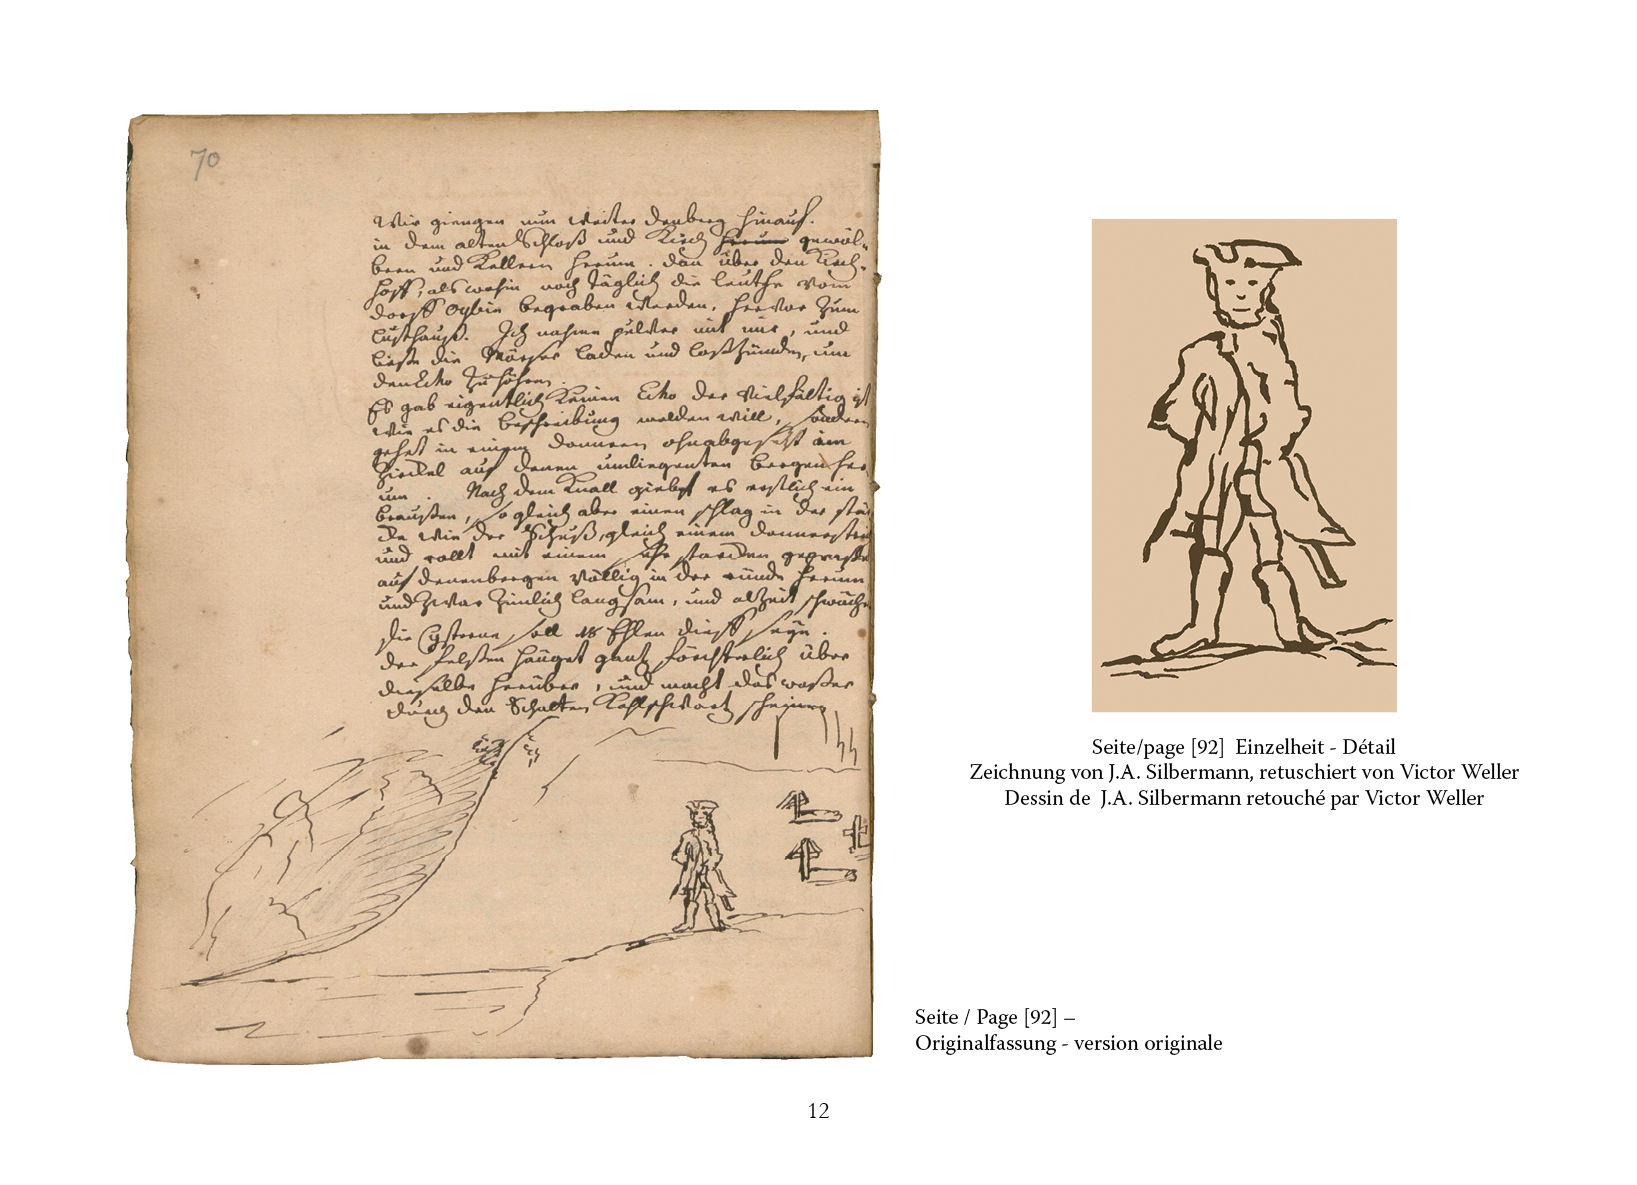 70
Wir giengen nun weiter den berg hinauf.
in dem alten Schloß und Kirch herum gewöl-
bern und Kellern herum. dan über den Kirch-
hoff, als wohin noch täglich die leuthe vom
dorff Oybin begraben werden, hervor zum
lusthauß. Ich nahm pulver mit mir, und
ließe die Mörser laden und loßzünden, um
den Echo zu höhren.
Es gab eigentlich keinen Echo der vielfältig ist
wie es die beschreibung melden will, sondern
gehet in einem donnern ohnabgesetzt im
Zirckel auf denen umliegenten bergen her
um. Nach dem Knall giebt es erstlich ein
braußen, so gleich aber einen schlag in der stär
cke wie der Schuß, gleich einem donnerstreich
und rollt mit einem sehr starcken
auf denen bergen völlig in der runde herum
und zwar zimlich langsam, und alzeit schwächer
die Cysterne soll 18 Ehlen dieff seyn.
der felßen hänget gantz förchterlich über
dieselbe herüber, und macht das waßer
durch den Schatten Kohlschwartz scheinen
Seite/page [92] Einzelheit - Détail
Zeichnung von J.A. Silbermann, retuschiert von Victor Weller
Dessin de J.A. Silbermann retouché par Victor Weller
Seite / Page [92] –
Originalfassung - version originale
12